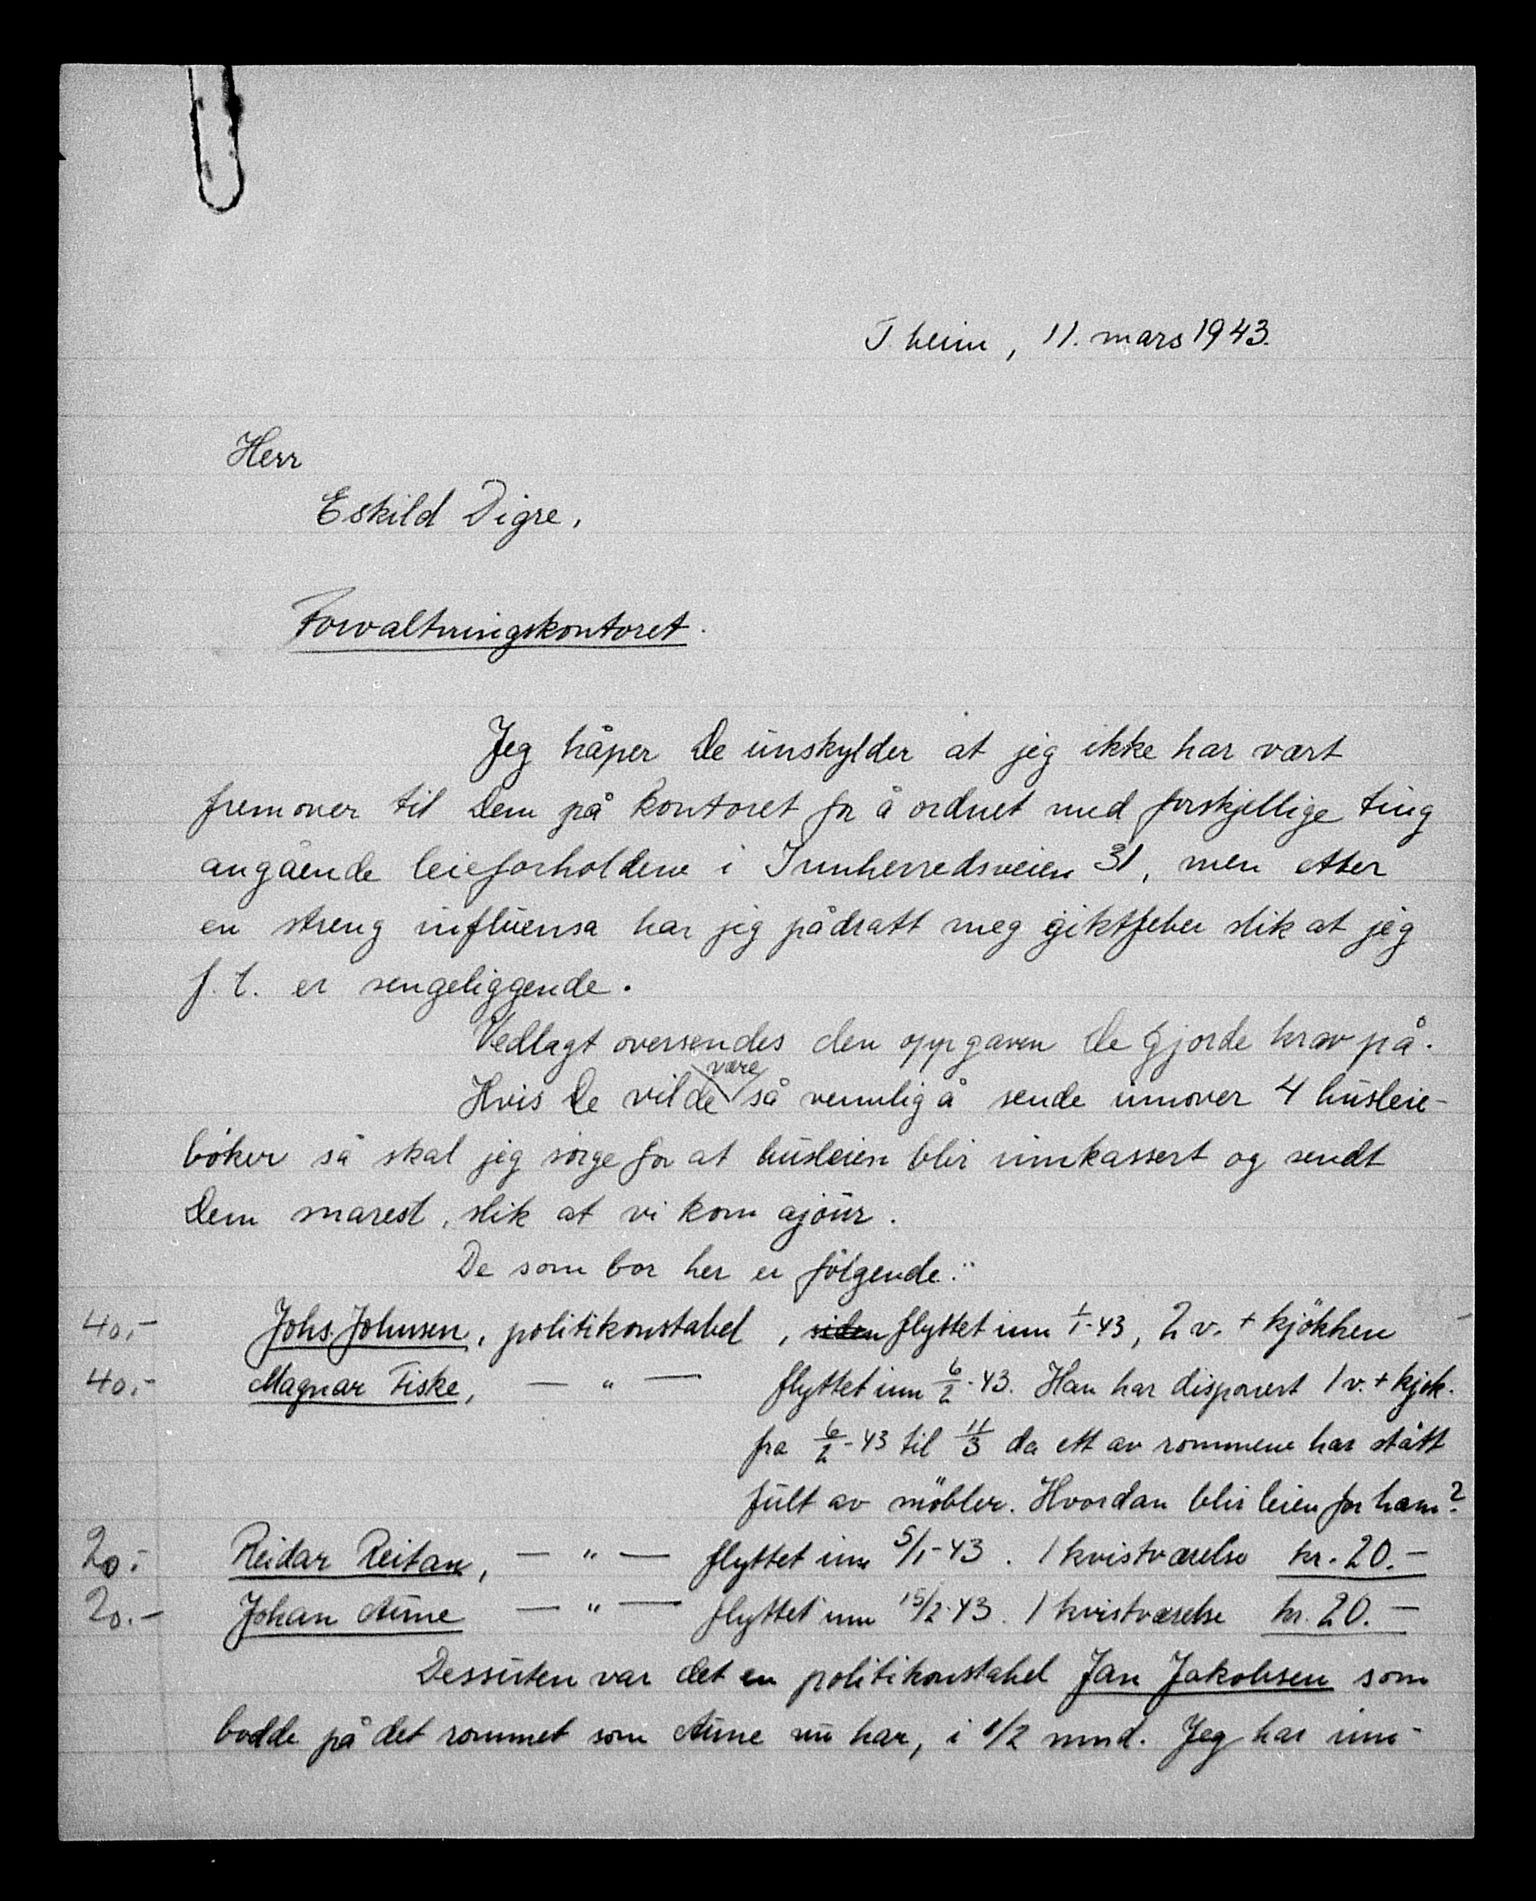 T.heim, 11. mars 1943.
Herr
Eskild Digre,
Forvaltningskontoret.
Jeg håper De unskylder at jeg ikke har vært
fremover til Dem på kontoret for å ordnet med forskjellige ting
angående leieforholdene i Innherredsveien 31, men etter
en streng influensa har jeg pådratt meg giktfeber slik at jeg
f. t. er sengeliggende.
Vedlagt oversendes den oppgaven De gjorde krav på.
være
Hvis De vilde så vennlig å sende innover 4 husleie-
bøker så skal jeg sørge for at husleien blir innkassert og sendt
Dem snarest, slik at vi kom ajour.
De som bor her er følgende:
40,- Johs. Johnsen, politikonstabel, siden flyttet inn 1/1-43, 2 v. + kjökken
40,- Magnar Fiske, — " — flyttet inn 6/2-43. Han har disponert 1 v. + kjøk.
fra 6/2-43 til 11/3 da ett av rommene har stått
fult av möbler. Hvordan blir leien for ham?
20,- Reidar Reitan, — " — flyttet inn 5/1-43. 1 kvistværelse kr. 20.-
20.- Johan Aune — " — flyttet inn 15/2-43. 1 kvistværelse kr. 20.-
Dessuten var det en politikonstabel Jan Jakobsen som
bodde på det rommet som Aune nu har, i 1/2 mnd. Jeg har inn-